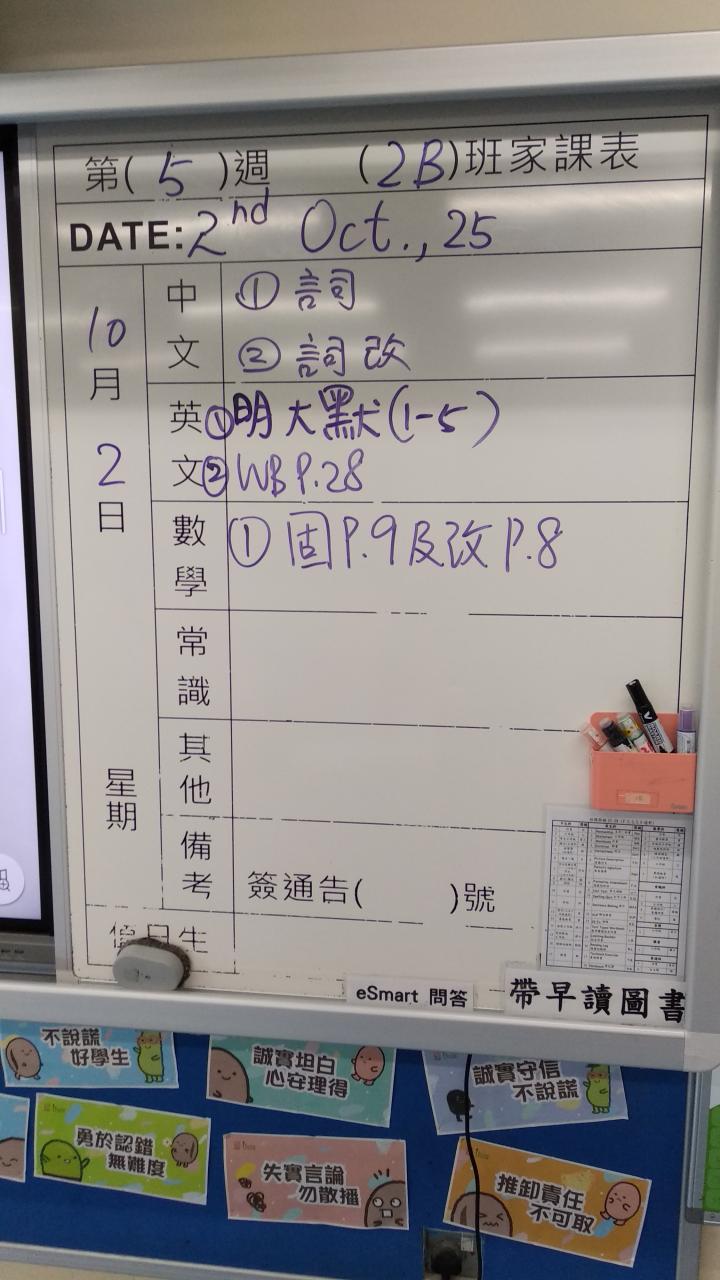 第(5)週 (2B)班家課表
DATE: 2nd Oct., 25
10月2日
星期
中文
① 詞
② 詞改
英文
① 明大默(1-5)
② WB P.28
數學
① 固P.9及改P.8
常識
其他
備考
簽通告( )號
值日生
eSmart 問答
帶早讀圖書
不說謊
好學生
誠實坦白
心安理得
誠實守信
不說謊
勇於認錯
無難度
失實言論
勿散播
推卸責任
不可取